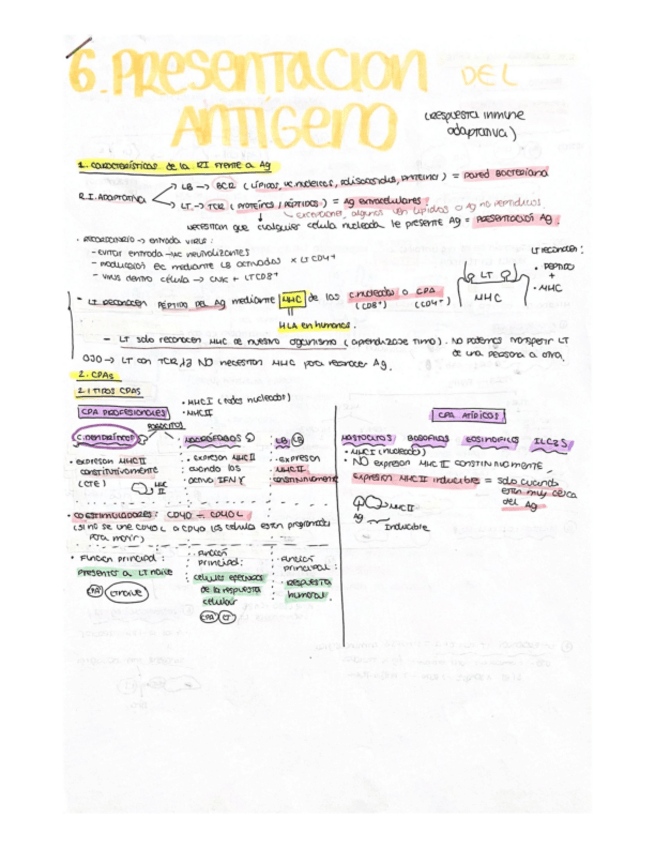 6. PRESENTACION DEL
ANTÍGENO (respuesta inmune
adaptativa)
1. CARACTERÍSTICAS de la RI frente a Ag
R.I. ADAPTATIVA
LB → BCR (Lípidos, ac. nucleicos, polisacáridos, proteínas) = pared bacteriana
LT → TCR (proteínas / péptidos) = Ag extracelulares.
excepciones, algunos ven lípidos o Ag no peptídicos
necesitan que cualquier célula nucleada le presente Ag = PRESENTACIÓN Ag.
· RECORDATORIO → entrada virus:
- evitar entrada → ac neutralizantes
- producidos ec mediante LB activados x LTCD4+
- virus dentro célula → CNK + LTCD8+
LT reconocen:
· PÉPTIDO
+
· MHC
LT
MHC
- LT reconocen PÉPTIDO del Ag mediante MHC de las c.nucleadas o CPA
(CD8+) (CD4+)
HLA en humanos.
- LT solo reconocen MHC de nuestro organismo (aprendizaje timo). No podemos transferir LT
de una persona a otra.
OJO → LT con TCR γδ NO necesitan MHC para reconocer Ag.
2. CPAs
2.1 TIPOS CPAS
CPA PROFESIONALES
· MHC I (todas nucleadas)
· MHC II
FAGOCITOS
C. DENDRÍTICAS
MACRÓFAGOS
LB
· expresan MHC II
constitutivamente
(CTE)
MHC
II
· expresan MHC II
cuando los
activa IFN γ
· Expresan
MHC II
constitutivamente
· COESTIMULADORES: CD40 - CD40L
(si no se une CD40L a CD40 las célula están programadas
para morir)
· Función principal:
presentar a LT naive
CPA LTnaive
· Función
principal:
células efectoras
de la respuesta
celular
CPA LT
· Función
principal:
respuesta
humoral.
CPA ATÍPICOS
MASTOCITOS BASÓFILOS EOSINÓFILOS ILC2S
· MHC I (nucleado)
· NO expresan MHC II constitutivamente
expresión MHC II inducible = solo cuando
están muy cerca
del Ag
MHC II
Ag
Inducible